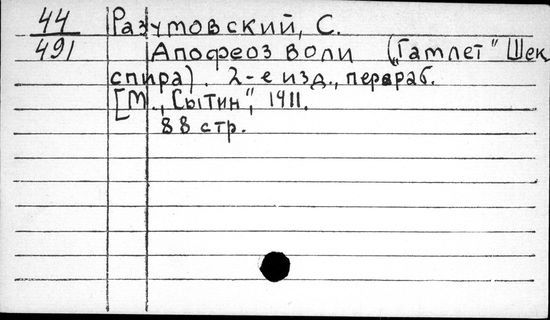 44
491
Разумовский, С.
Апофеоз воли („Гамлет" Шек
спира). 2-е изд., перераб.
[М., „Сытин", 1911.
88 стр.